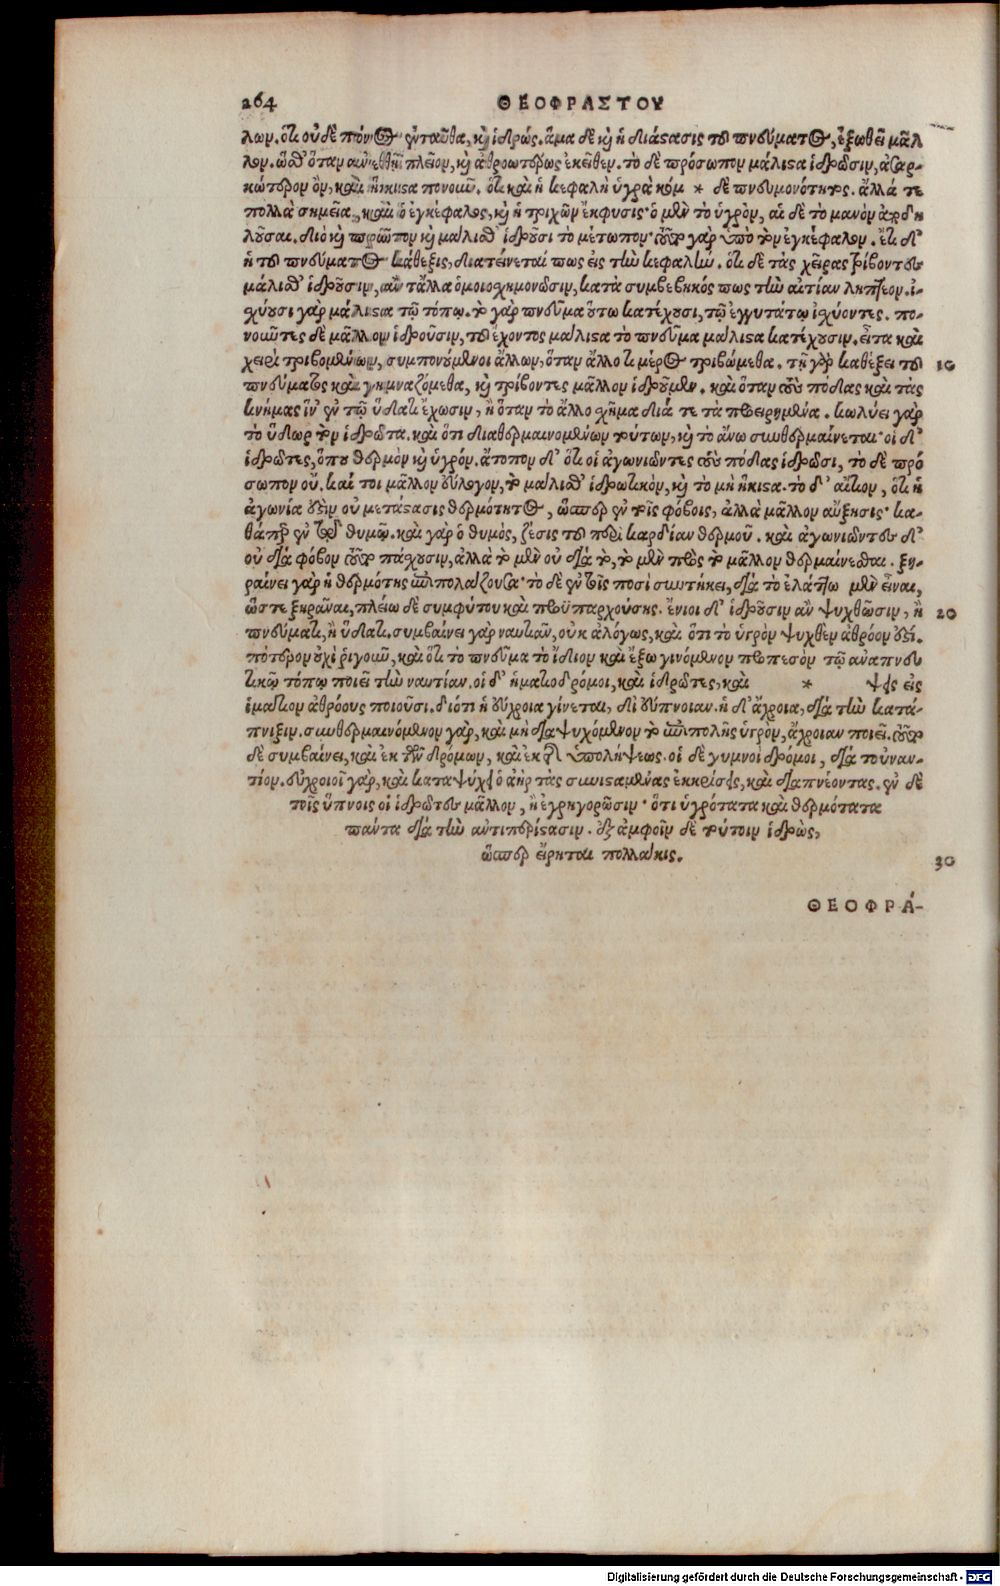 264 ΘΕΟΦΡΑΣΤΟΥ
λων. ὅτι οὐδὲ πόνος ἐνταῦθα, καὶ ἱδρώς. ἅμα δὲ καὶ ἡ διάστασις τοῦ πνεύματος, ἐξωθεῖ μᾶλ
λον. ὥσθ' ὅταν πλεῖον, καὶ ἀθροωτέρως ἐκεῖθεν. τὸ δὲ πρόσωπον μάλιστα ἱδρῶσιν, ἀσαρ-
κώτερον ὂν, καὶ ἥκιστα πονοῦν. ὅτι καὶ ἡ κεφαλὴ ὑγρὰ κόμ * δὲ πνευμονότητος. ἀλλά τε
πολλὰ σημεῖα, καὶ ὁ ἐγκέφαλος, καὶ ἡ τριχῶν ἔκφυσις· ὁ μὲν τὸ ὑγρὸν, αἱ δὲ τὸ μανὸν παραδη
λοῦσαι. διὸ καὶ πρῶτον καὶ μάλισθ' ἱδροῦσι τὸ μέτωπον· τοῦτο γὰρ ὑπὸ τὸν ἐγκέφαλον. ἔτι δ'
ἡ τοῦ πνεύματος κάθεξις, διατείνεταί πως εἰς τὴν κεφαλήν. ὅτι δὲ τὰς χεῖρας τρίβοντες
μάλισθ' ἱδροῦσιν, ἂν τἄλλα ὁμοιοσχημονῶσιν, κατὰ συμβεβηκός πως τὴν αἰτίαν ληπτέον. ἰ-
σχύουσι γὰρ μάλιστα τῷ τόπῳ. τὸ γὰρ πνεῦμα οὕτω κατέχουσι, τῷ ἐγγυτάτω ἰσχύοντες. πο-
νοῦντες δὲ μᾶλλον ἱδροῦσιν, τοῦ ἔχοντος μάλιστα τὸ πνεῦμα μάλιστα κατέχουσιν. εἶτα καὶ
χειρὶ τριβομένων, συμπονούμενοι ἄλλων, ὅταν ἄλλο τι μέρος τριβώμεθα. τῇ γὰρ καθέξει τοῦ 10
πνεύματος καὶ γυμναζόμεθα, καὶ τρίβοντες μᾶλλον ἱδροῦμεν. καὶ ὅταν τοὺς πόδας καὶ τὰς
κνήμας ἐν τῷ ὕδατι ἔχωσιν, ἢ ὅταν τὸ ἄλλο σχῆμα διά τε τὰ προειρημένα. κωλύει γὰρ
τὸ ὕδωρ τὸν ἱδρῶτα. καὶ ὅτι διαθερμαινομένων τούτων, καὶ τὸ ἄνω συνθερμαίνεται· οἱ δ'
ἱδρῶτες, ὅπου θερμὸν καὶ ὑγρόν. ἄτοπον δ' ὅτι οἱ ἀγωνιῶντες τοὺς πόδας ἱδρῶσι, τὸ δὲ πρό
σωπον οὔ. καί τοι μᾶλλον εὔλογον, τὸ μάλισθ' ἱδρωτικὸν, καὶ τὸ μὴ ἥκιστα. τὸ δ' αἴτιον, ὅτι ἡ
ἀγωνία ἐστὶν οὐ μετάστασις θερμότητος, ὥσπερ ἐν τοῖς φόβοις, ἀλλὰ μᾶλλον αὔξησις· κα-
θάπερ ἐν τῷ θυμῷ. καὶ γὰρ ὁ θυμὸς, ζέσις τοῦ περὶ καρδίαν θερμοῦ. καὶ ἀγωνιῶντες δ'
οὐ διὰ φόβον τοῦτο πάσχουσιν, ἀλλὰ τὸ μὲν οὐ διὰ τὸ, τὸ μὲν πρὸς τὸ μᾶλλον θερμαίνεσθαι. ξη-
ραίνει γὰρ ἡ θερμότης ἐπιπολάζουσα· τὸ δὲ ἐν τοῖς ποσὶ συντήκει, διὰ τὸ ἐλάττω μὲν εἶναι,
ὥστε ξηρᾶναι, πλείω δὲ συμφύτου καὶ προϋπαρχούσης. ἔνιοι δ' ἱδροῦσιν ἂν ψυχθῶσιν, ἢ 20
πνεύματι, ἢ ὕδατι. συμβαίνει γὰρ ναυτιᾶν, οὐκ ἀλόγως, καὶ ὅτι τὸ ὑγρὸν ψυχθὲν ἀθρόον ἐστί.
πότερον οὐχὶ ῥιγοῦν, καὶ ὅτι τὸ πνεῦμα τὸ ἴδιον καὶ ἔξω γινόμενον προπεσὸν τῷ ἀναπνευ
τικῷ τόπῳ ποιεῖ τὴν ναυτίαν. οἱ δ' ἡματιοδρόμοι, καὶ ἱδρῶτες, καὶ * ψεις εἰς
ἱμάτιον ἀθρόους ποιοῦσι. διότι ἡ εὔχροια γίνεται, δι' εὔπνοιαν. ἡ δ' ἄχροια, διὰ τὴν κατά-
πνιξιν. συνθερμαινόμενον γὰρ, καὶ μὴ διαψυχόμενον τὸ ἐπιπολῆς ὑγρὸν, ἄχροιαν ποιεῖ. τοῦτο
δὲ συμβαίνει, καὶ ἐκ τῶν δρόμων, καὶ ἐκ τῆς ὑπολήψεως. οἱ δὲ γυμνοὶ δρόμοι, διὰ τοὐναν-
τίον. εὔχροιοι γὰρ, καὶ καταψύχει ὁ ἀὴρ τὰς συνισταμένας ἐκκρίσεις, καὶ διαπνέοντας. ἐν δὲ
τοῖς ὕπνοις οἱ ἱδρῶτες μᾶλλον, ἢ ἐγρηγορῶσιν· ὅτι ὑγρότατα καὶ θερμότατα
πάντα διὰ τὴν ἀντιπερίστασιν. ἐξ ἀμφοῖν δὲ τούτοιν ἱδρὼς,
ὥσπερ εἴρηται πολλάκις. 30
ΘΕΟΦΡΑ-
Digitalisierung gefördert durch die Deutsche Forschungsgemeinschaft - DFG